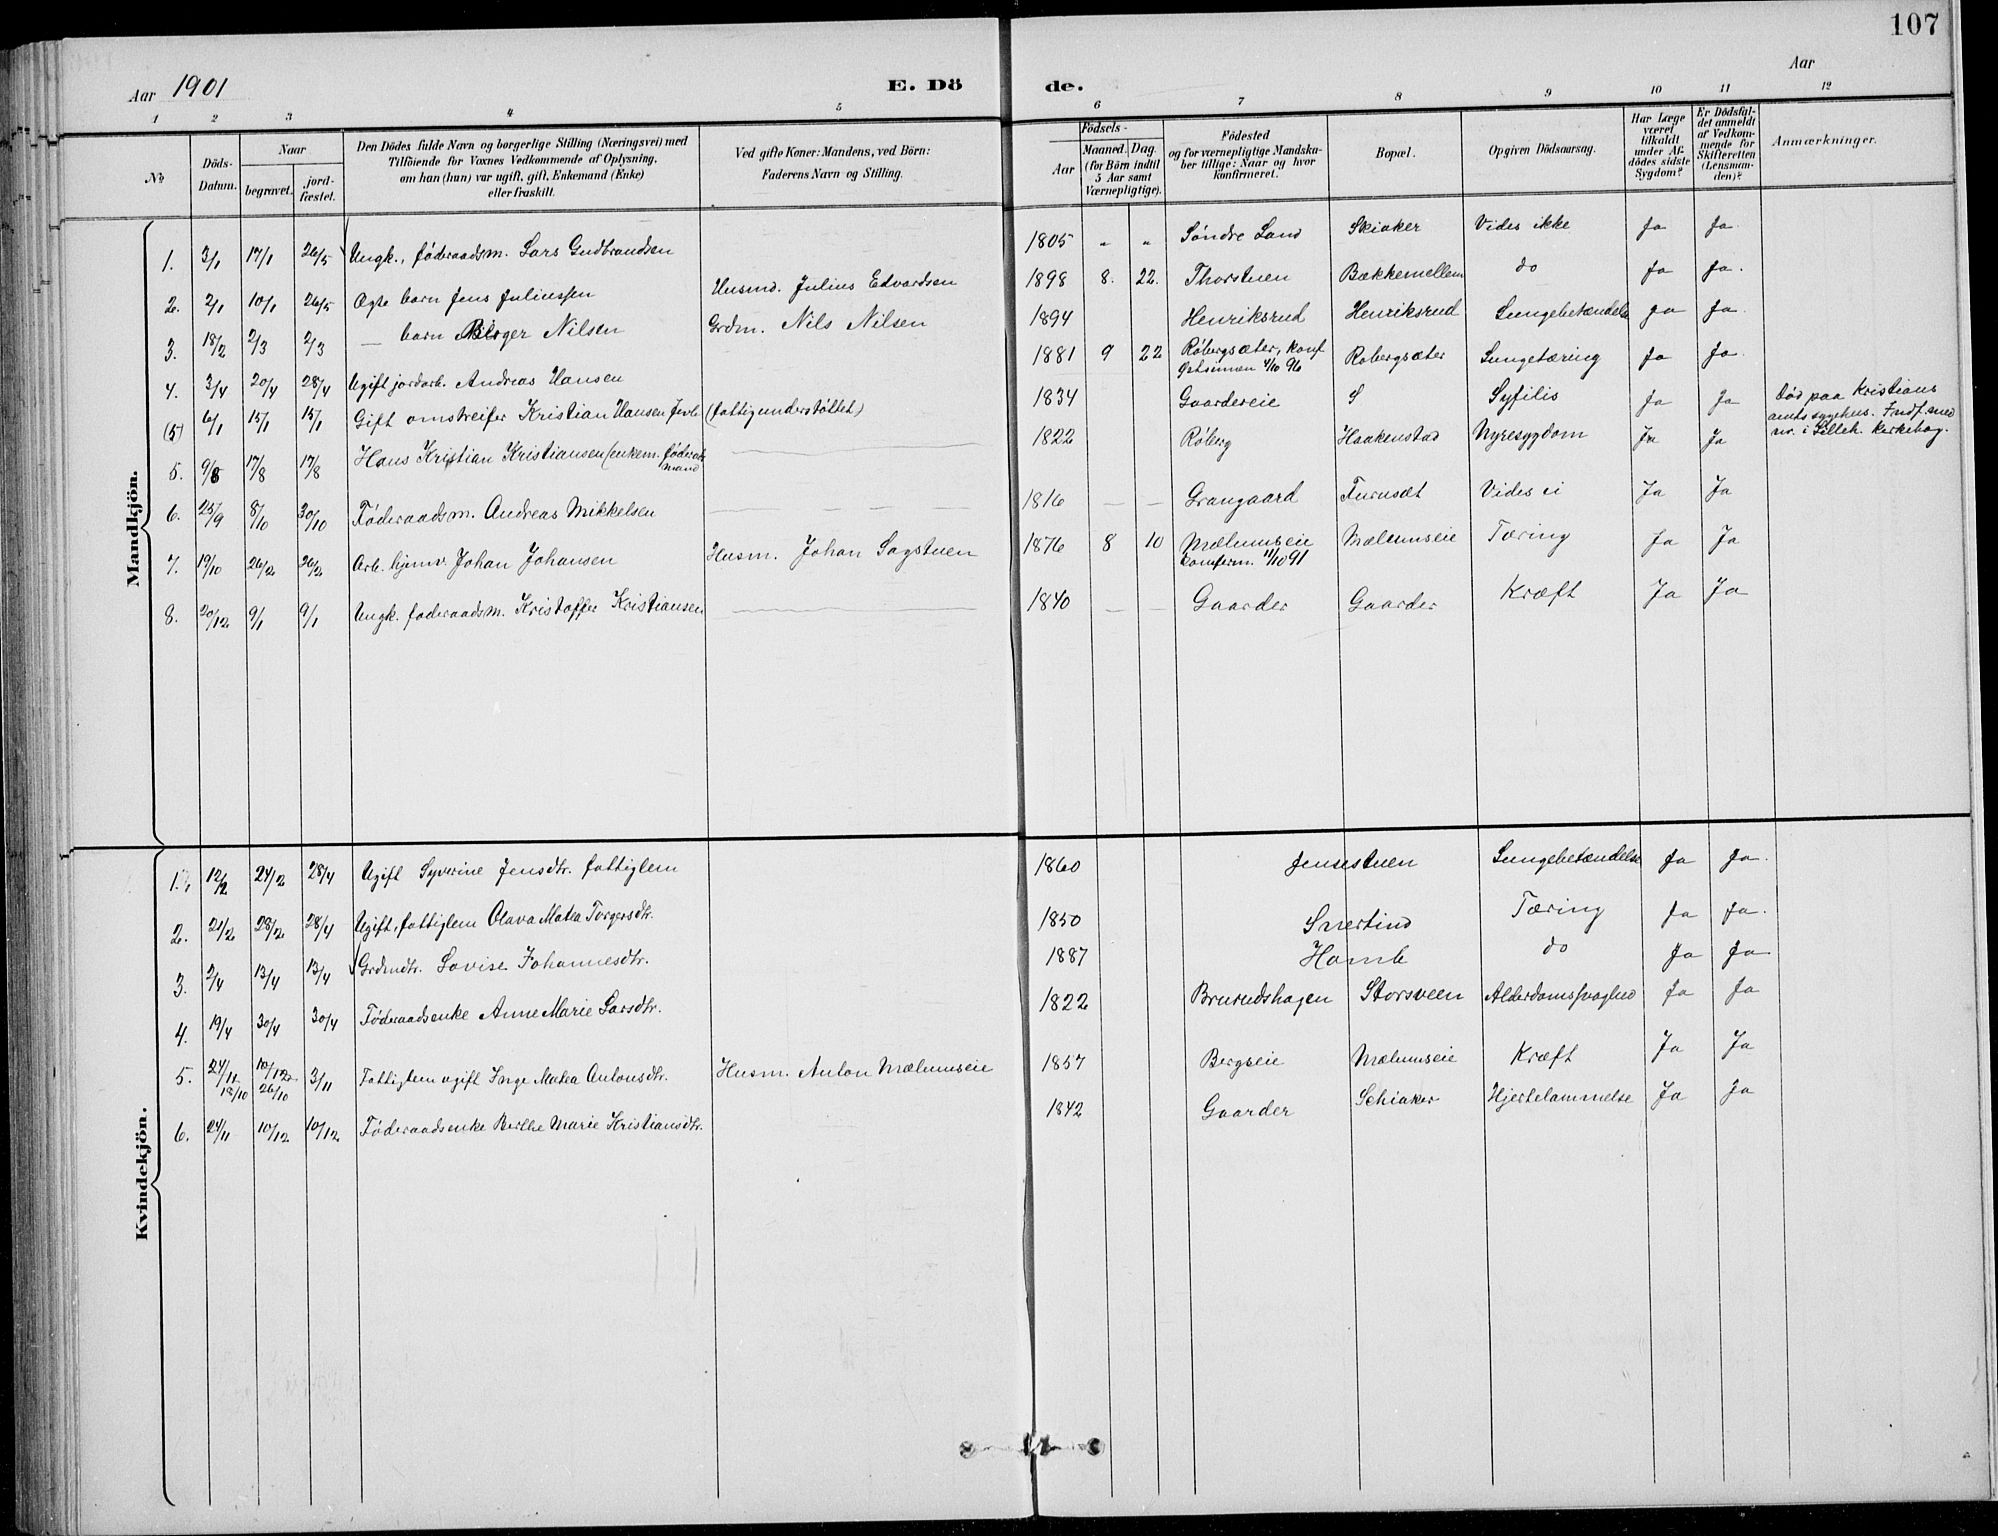 107
Aar 1901 E. Dö de. Aar
1 2 3 4 5 6 7 8 9 10 11 12
№ Döds-Datum. Naar begravet. jord-fæstet.
Den Dödes fulde Navn og borgerlige Stilling (Næringsvei) med
Tilföiende for Voxnes Vedkommende af Oplysning,
om han (hun) var ugift, gift, Enkemand (Enke)
eller fraskilt.
Ved gifte Koner: Mandens, ved Börn:
Faderens Navn og Stilling.
Födsels-
Aar Maaned. Dag.
(for Börn indtil
5 Aar samt
Værnepligtige).
Födested
og for værnepligtige Mandska-
ber tillige: Naar og hvor
konfirmeret.
Bopæl.
Opgiven Dödsaarsag.
Har Læge
været
tilkaldt
under Af-
dödes sidste
Sygdom?
Er Dödsfal-
det anmeldt
af Vedkom-
mende for
Skifteretten
(Lensman-
den)?
Anmærkninger.
Mandkjön.
1. 3/1 17/1 26/5 Ungk., føderaadsm. Lars Gudbrandsen 1805 " " Søndre Land Skiaker Vides ikke Ja Ja.
2. 2/1 10/1 26/5 Ægte barn Jens Juliussen Husmd. Julius Edvardsen 1898 8. 22. Thorstuen Bækkemellem do Ja Ja.
3. 18/2 2/3 2/3 — barn Birger Nilsen Grdm. Nils Nilsen 1894 Henriksrud Henriksrud Lungebetændelse Ja Ja.
4. 3/4 20/4 28/4 Ugift jordarb. Andreas Hansen 1881 9 22 Røbergsæter, konf 4/10 96 Robergsæter Lungetæring Ja Ja.
(5) 6/1 15/1 15/1 Gift omstreifer Kristian Hansen (fattigunderstøttet) 1834 Gaardereie Syfilis Ja Ja Død paa Kristians
amts sygehus. Indf. med
nr. i Lilleh. kirkebog.
5. 9/8 17/8 17/8 Hans Kristian Kristiansen (enkem. føderaadsmand 1822 Røberg Haakenstad Nyresygdom Ja Ja
6. 25/9 8/10 30/10 Føderaadsm. Andreas Mikkelsen 1816 — — Grangaard Furusæt Vides ei Ja Ja
7. 19/10 26/2 26/2 Arb. hjemv. Johan Johansen Husm. Johan Sagstuen 1876 8 10 Mælumseie konferm. 11/10 91 Mælumseie Tæring Ja Ja
8. 20/12 9/1 9/1 Ungk. føderaadsm. Kristoffer Kristiansen 1840 — — Gaarder Gaarder Kræft Ja Ja
Kvindekjön.
1. 12/2 24/2 28/4 Ugift Syverine Jensdtr. fattiglem 1860 Jensestuen Lungebetændelse Ja Ja.
2. 21/2 28/2 28/4 Ugift, fattiglem Olava Matea Torgersdtr. 1850 Snertind Tæring Ja Ja.
3. 2/4 13/4 13/4 Grdmdtr. Lovise Johannesdtr. 1887 Homb do Ja Ja
4. 19/4 30/4 30/4 Føderaadsenke Anne Marie Larsdtr. 1822 Brurudshagen Storsveen Alderdomssvaghed Ja Ja
5. 24/11 18/10 10/12 26/10 3/11 Fattiglem ugift Inge Matea Antonsdtr. Husm. Anton Mælumseie 1857 Bergseie Mælumseie Kræft Ja Ja
6. 24/11 10/12 10/12 Føderaadsenke Berthe Marie Kristiansdtr. 1842 Gaarder Schiaker Hjertelammelse Ja Ja